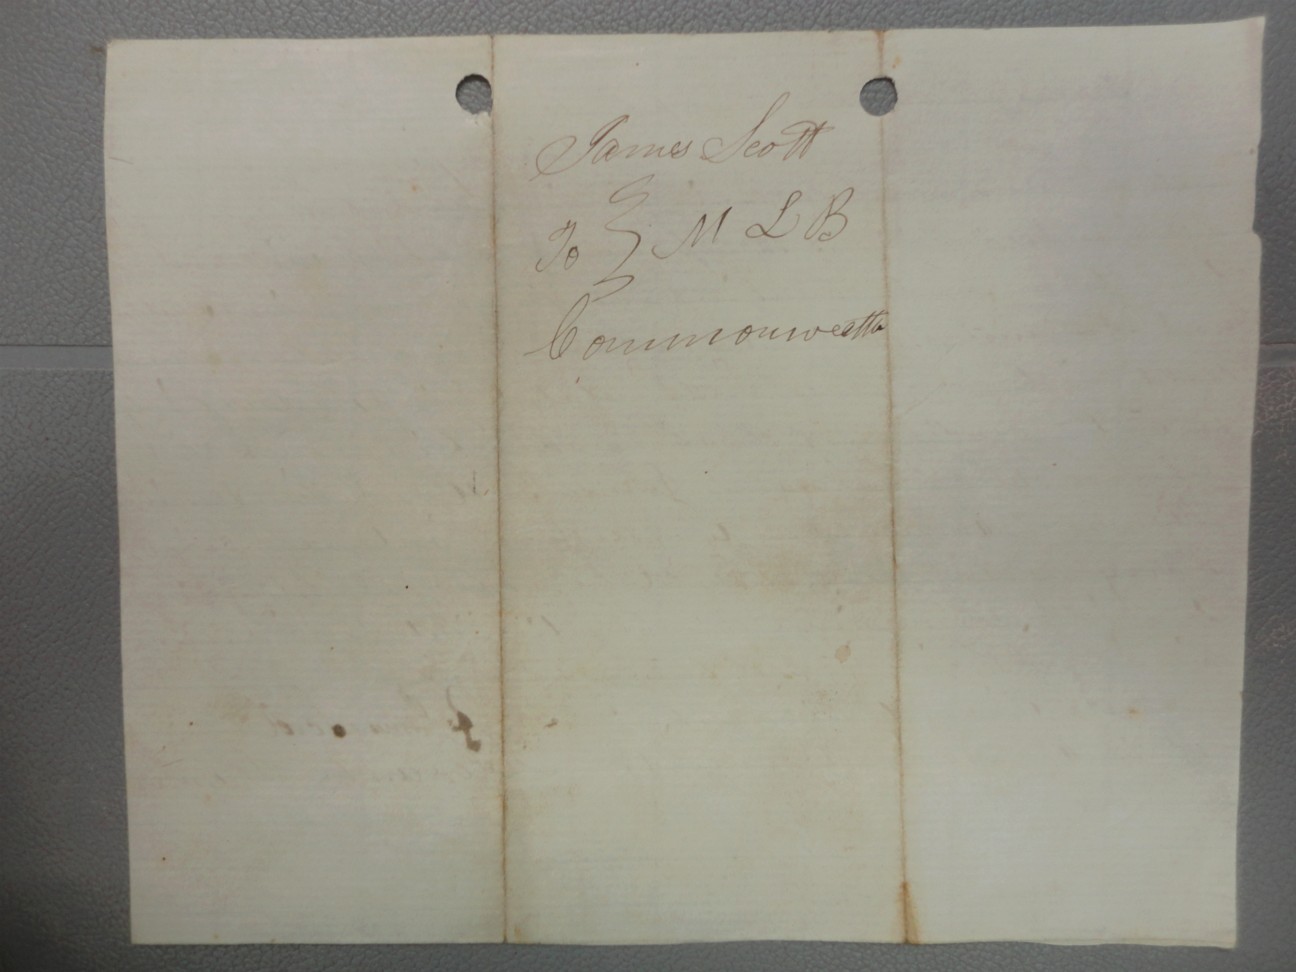 James Scott
To } M L B
Commonwealth